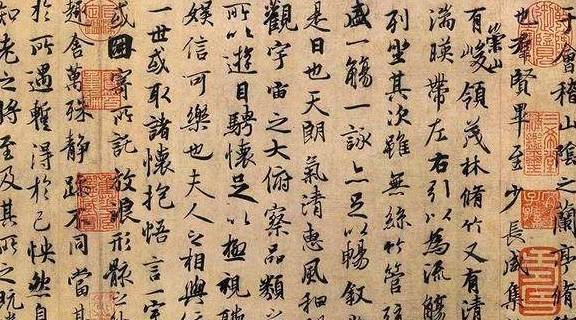 于會稽山陰之蘭亭脩
也羣賢畢至少長咸集
有崇山峻領茂林脩竹又有清
湍暎帶左右引以為流觴
列坐其次雖無絲竹管弦
盛一觴一詠亦足以暢叙
是日也天朗氣清惠風和
觀宇宙之大俯察品類之
所以遊目騁懷足以極視聽
娛信可樂也夫人之相與
一世或取諸懷抱悟言一室
或因寄所託放浪形骸之外
趣舍萬殊靜躁不同當其
於所遇暫得於己怏然自
知老之將至及其所之既